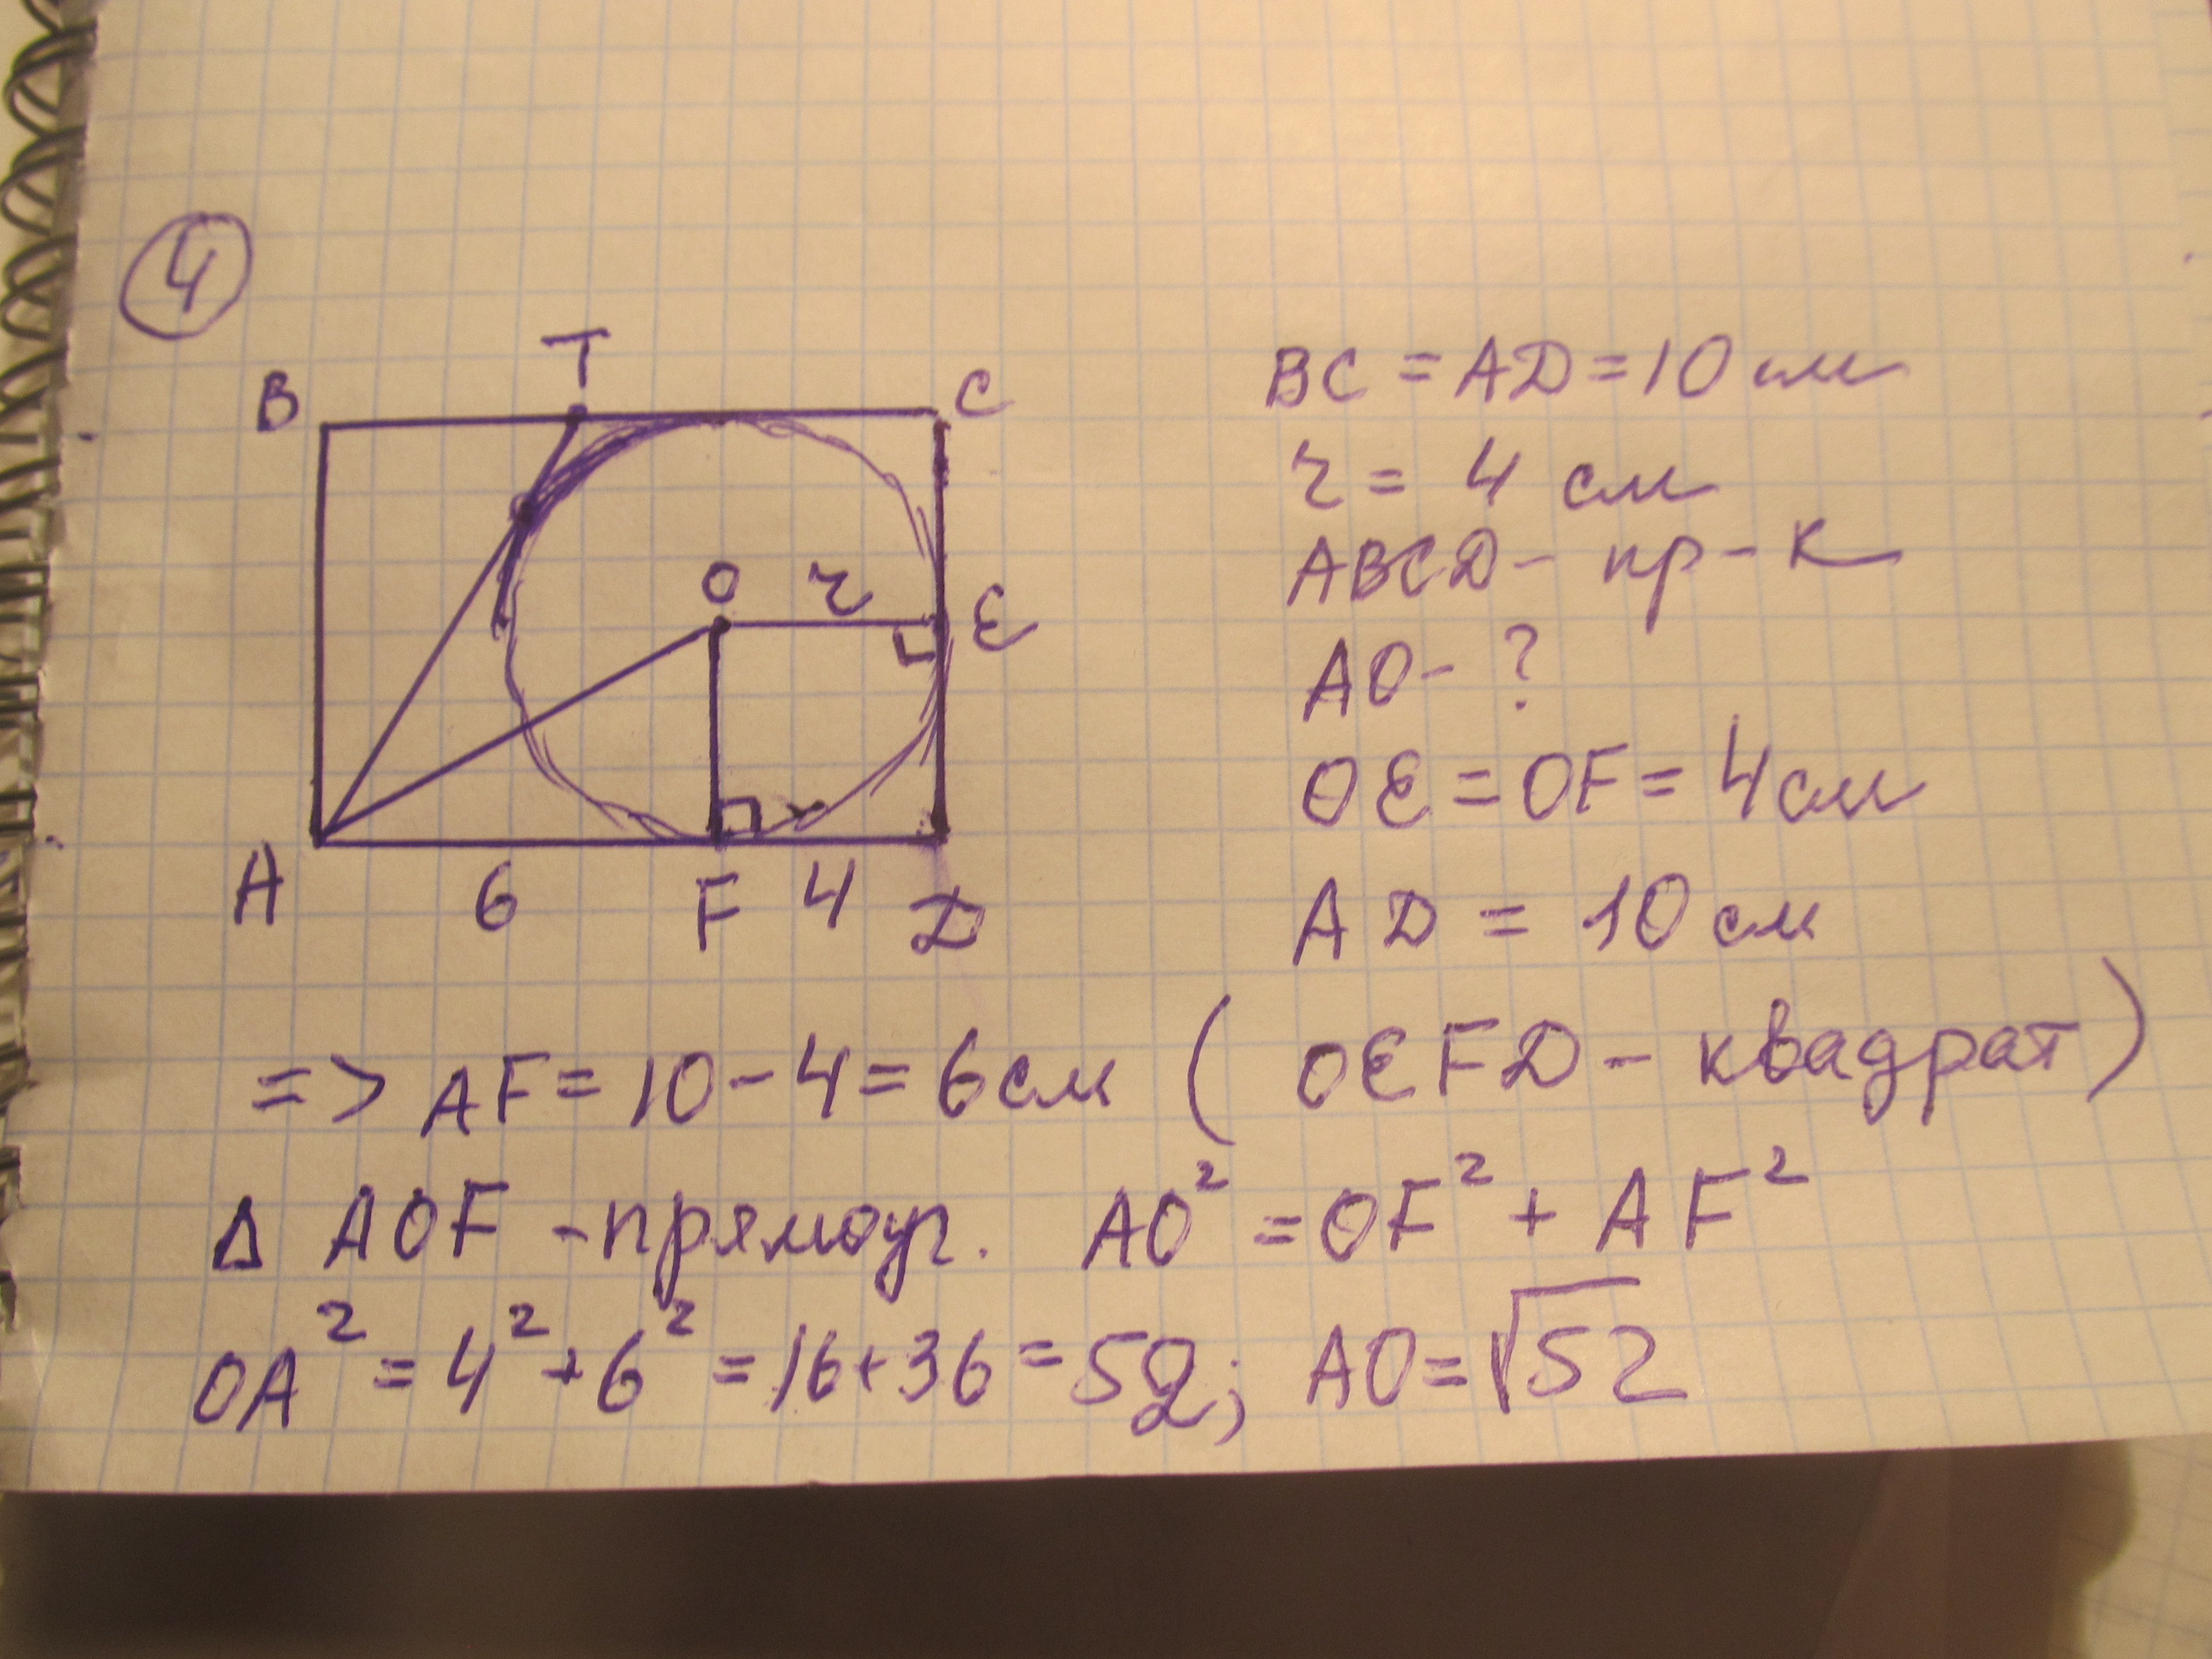 ④
T
B
C
O
r
E
A
6
F
4
D
BC = AD = 10 см
r = 4 см
ABCD - пр-к
AO - ?
OE = OF = 4 см
AD = 10 см
=> AF = 10 - 4 = 6 см ( OEFD - квадрат )
Δ AOF - прямоуг. AO² = OF² + AF²
OA² = 4² + 6² = 16 + 36 = 52; AO = √52